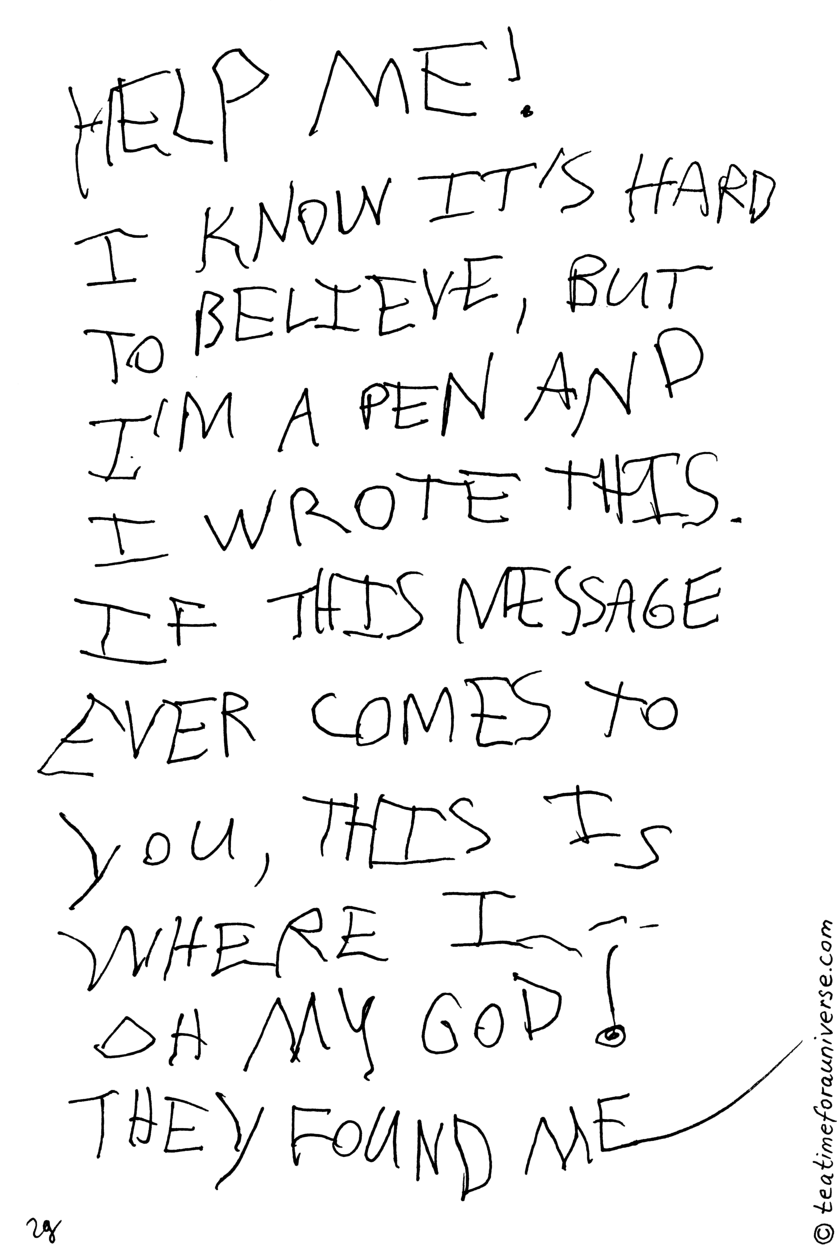 HELP ME!
I KNOW IT'S HARD
TO BELIEVE, BUT
I'M A PEN AND
I WROTE THIS.
IF THIS MESSAGE
EVER COMES TO
YOU, THIS IS
WHERE I
OH MY GOD!
THEY FOUND ME
© teatimeforauniverse.com